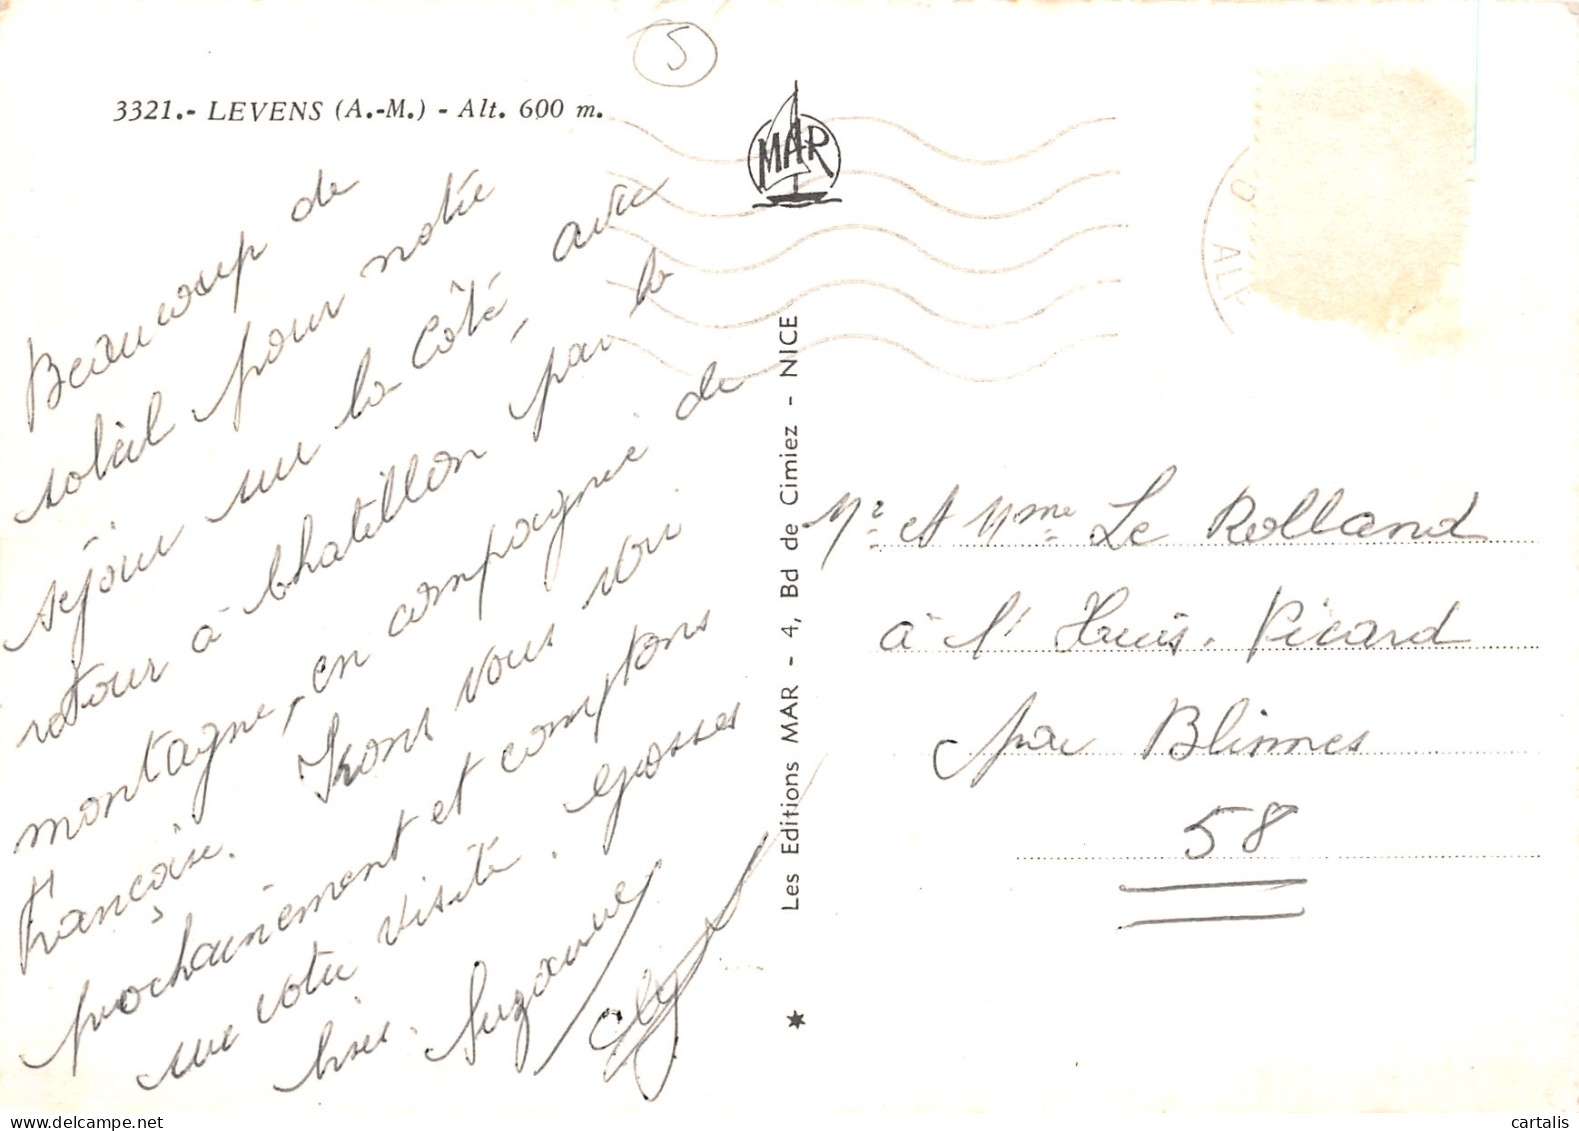 5
3321.- LEVENS (A.-M.) - Alt. 600 m.
MAR
Beaucoup de
soleil pour notre
séjour sur la Côté, avec
retour à Chatillon par la
montagne, en compagnie de
Françoise. Irons vous voir
prochainement et comptons
sur votre visite. Grosses
bises. Suzanne
Les Editions MAR - 4, Bd de Cimiez - NICE
Mr et Mme Le Rolland
à l'Huis. Picard
par Blismes
58
cartalis
www.delcampe.net